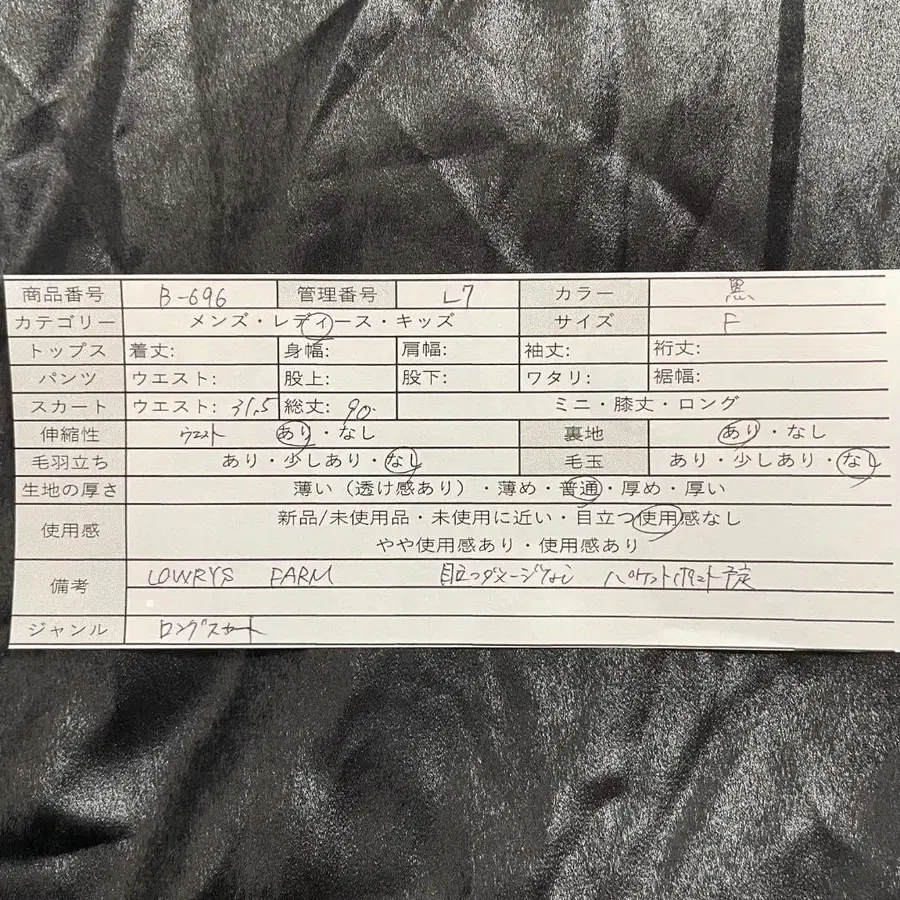 商品番号 B-696 管理番号 L7 カラー 黒
カテゴリー メンズ・レディース・キッズ サイズ F
トップス 着丈: 身幅: 肩幅: 袖丈: 裄丈:
パンツ ウエスト: 股上: 股下: ワタリ: 裾幅:
スカート ウエスト: 31.5 総丈: 90. ミニ・膝丈・ロング
伸縮性 ウエスト あり・なし 裏地 あり・なし
毛羽立ち あり・少しあり・なし 毛玉 あり・少しあり・なし
生地の厚さ 薄い（透け感あり）・薄め・普通・厚め・厚い
使用感 新品/未使用品・未使用に近い・目立つ使用感なし
やや使用感あり・使用感あり
備考 LOWRYS FARM 目立つダメージなし 予定
ジャンル ロングスカート